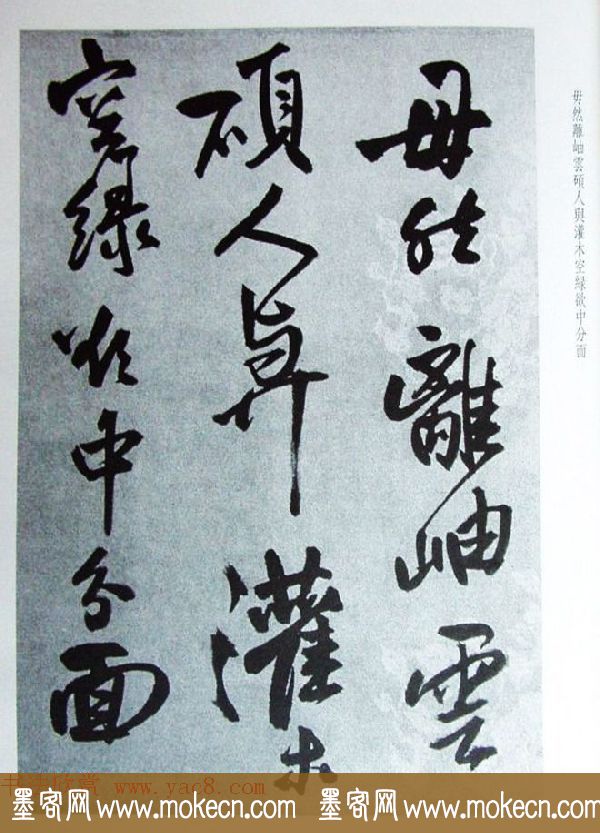 毋然離岫雲碩人與灌木空緑欲中分面
毋然離岫雲
碩人與灌木
空緑欲中分面
书法欣赏 www.yac8.com
墨客网 www.mokecn.com 墨客网 www.mokecn.com